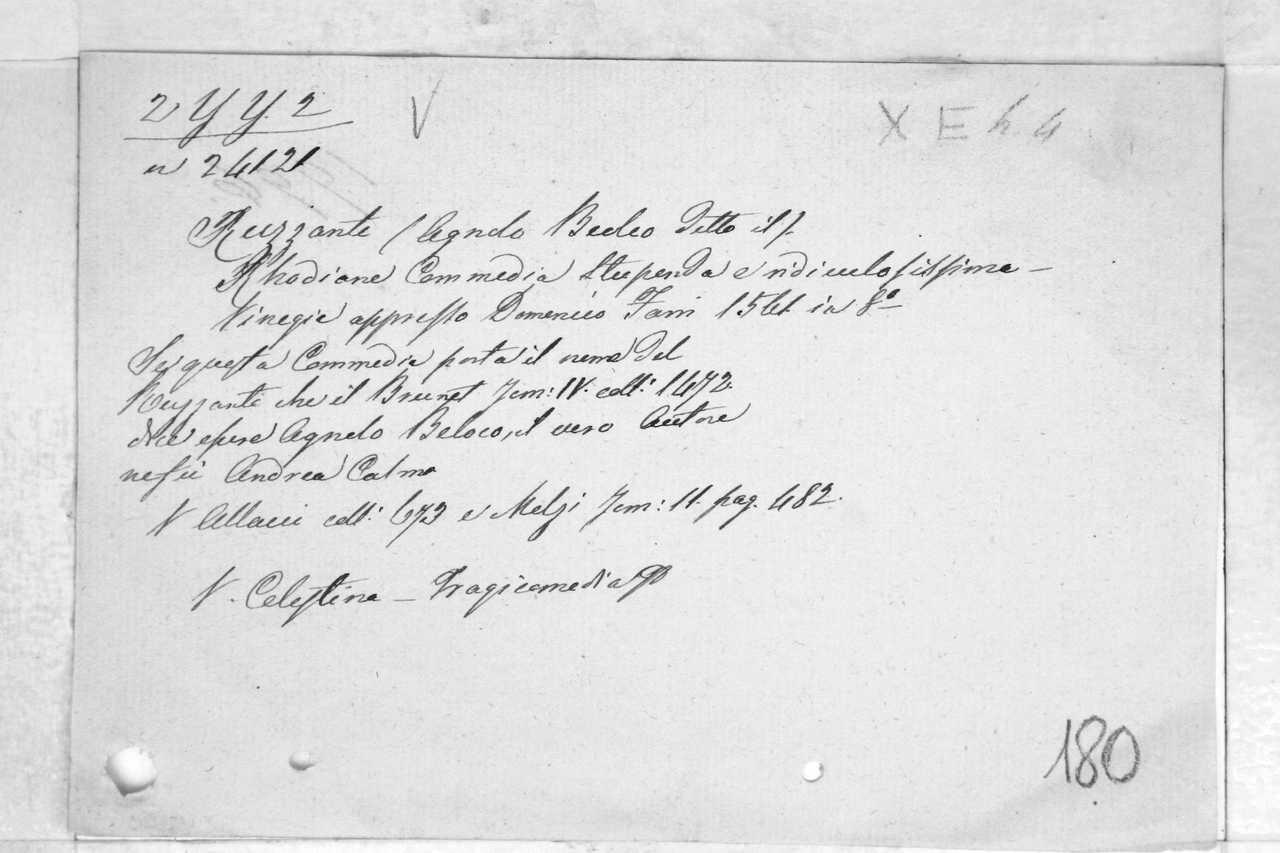 2 Y Y. 2 V X E h. 4
n 24121
Ruzzante (Agnolo Beolco detto il).
Rhodiana Commedia stupenda e ridiculosissima –
Vinegia appresso Domenico Farri 1561 in 8º
Se questa Commedia porta il nome del
Ruzzante che il Brunet Tom: IV. coll: 1472.
dice essere Agnolo Beloco, il vero Autore
ne fu Andrea Calmo
V Allacci coll: 673 e Melzi Tom: II. pag. 482.
V. Celestina – Tragicomedia
180